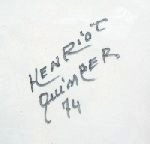 HENRIOT
QUIMPER
74